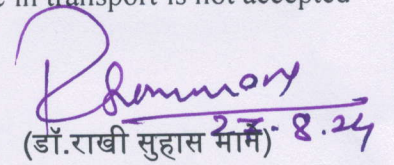 in transport is not accepted
27-8.24
(डॉ.राखी सुहास माने)